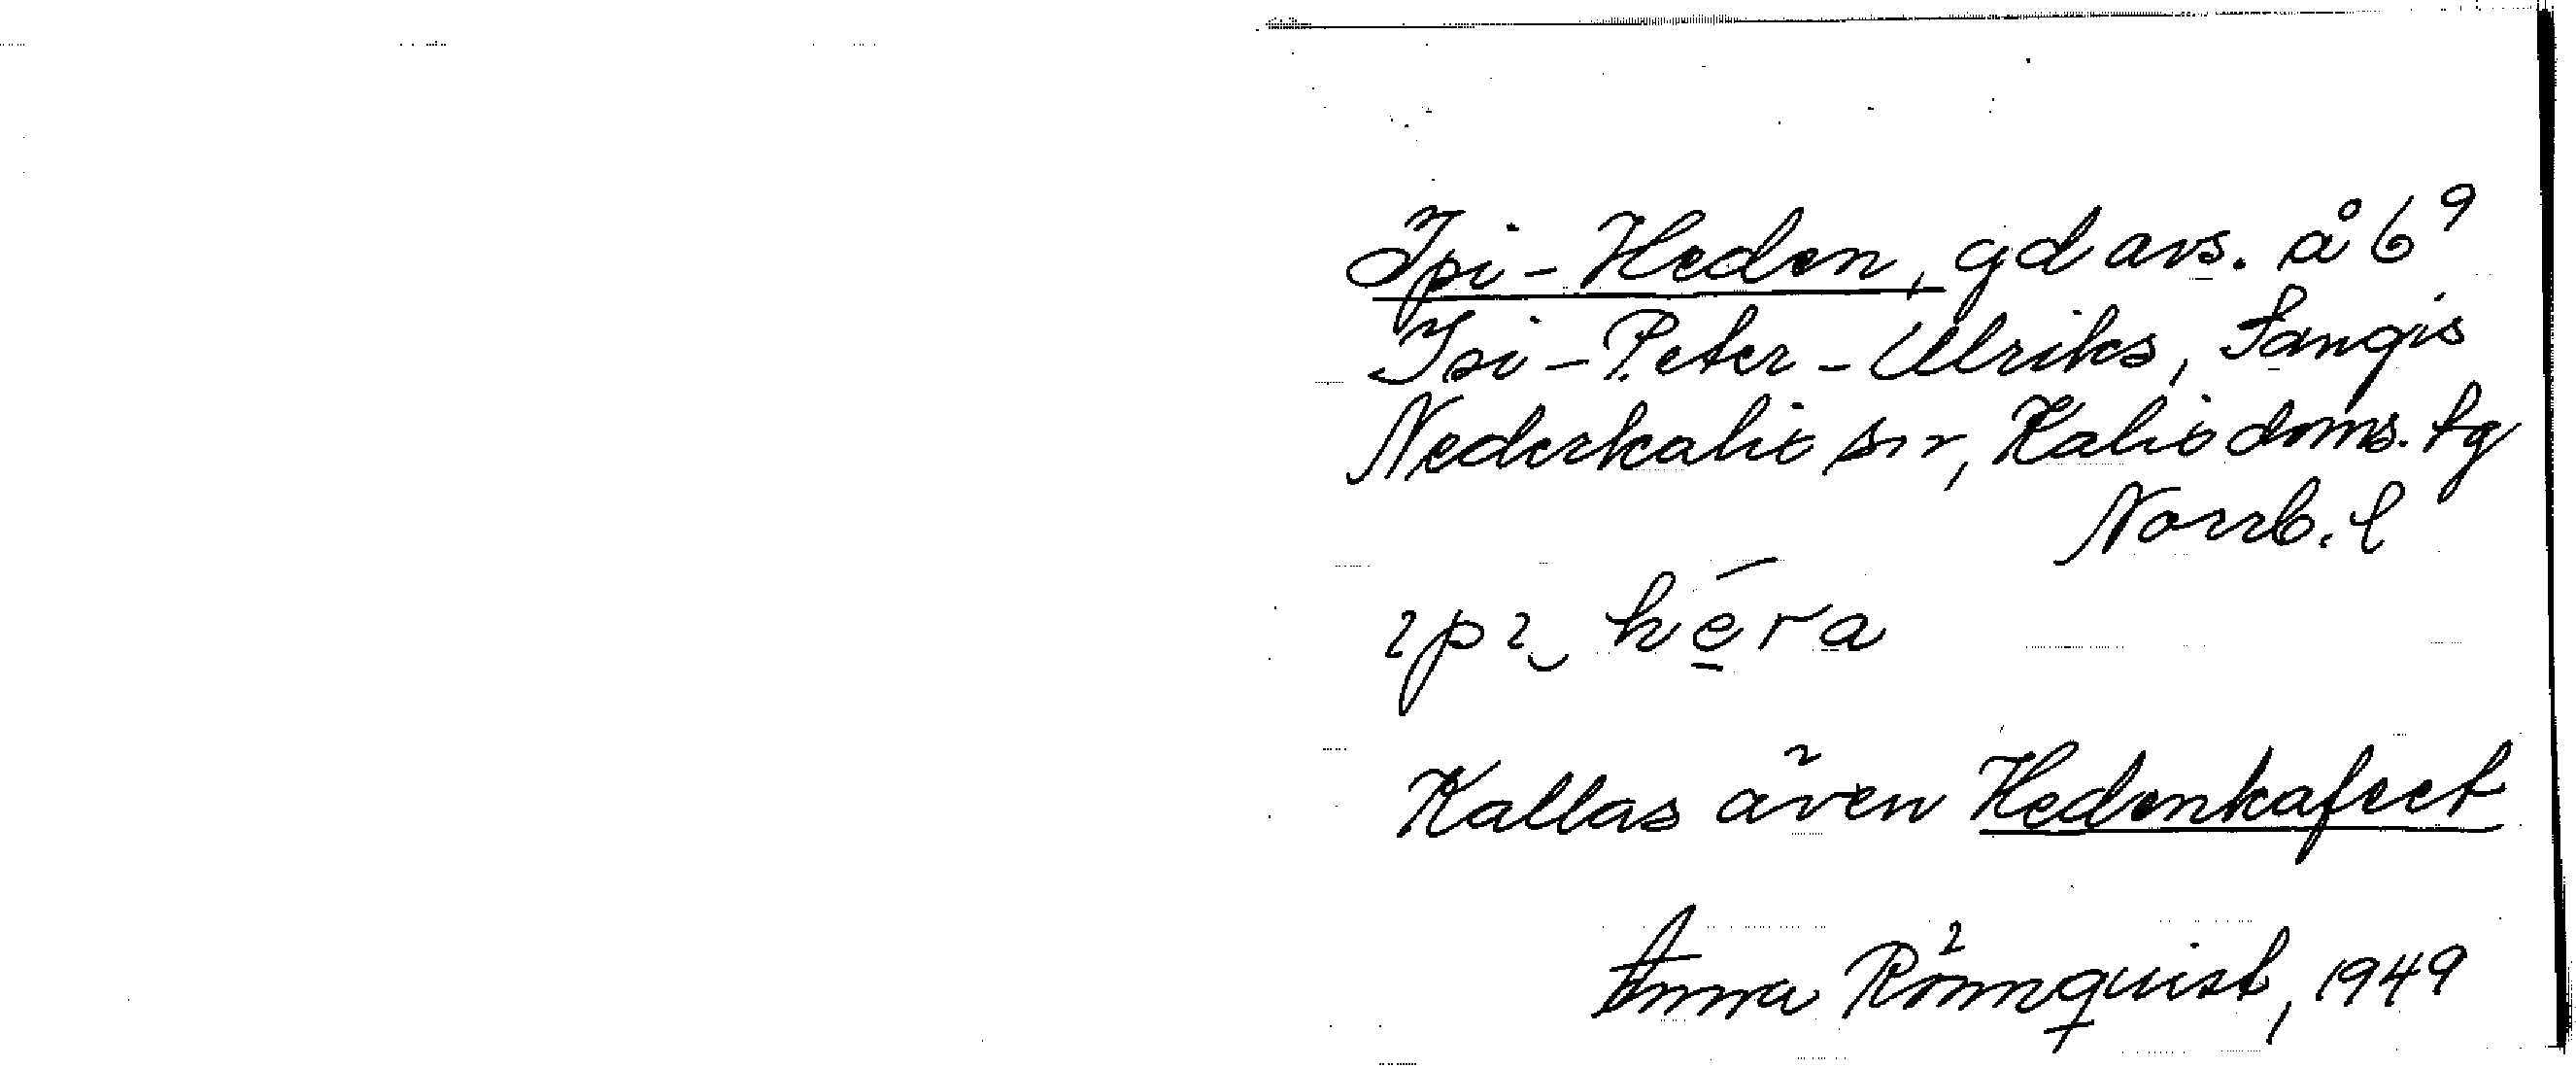 Ipi-Heden, gd avs. å 6⁹
Isi-Peter-Ulriks, Sangis
Nederkalix sn, Kalix doms. tg
Norrb. l
ɩpɩ hēra
Kallas även Hedenkafeet
Anna Rönnquist, 1949